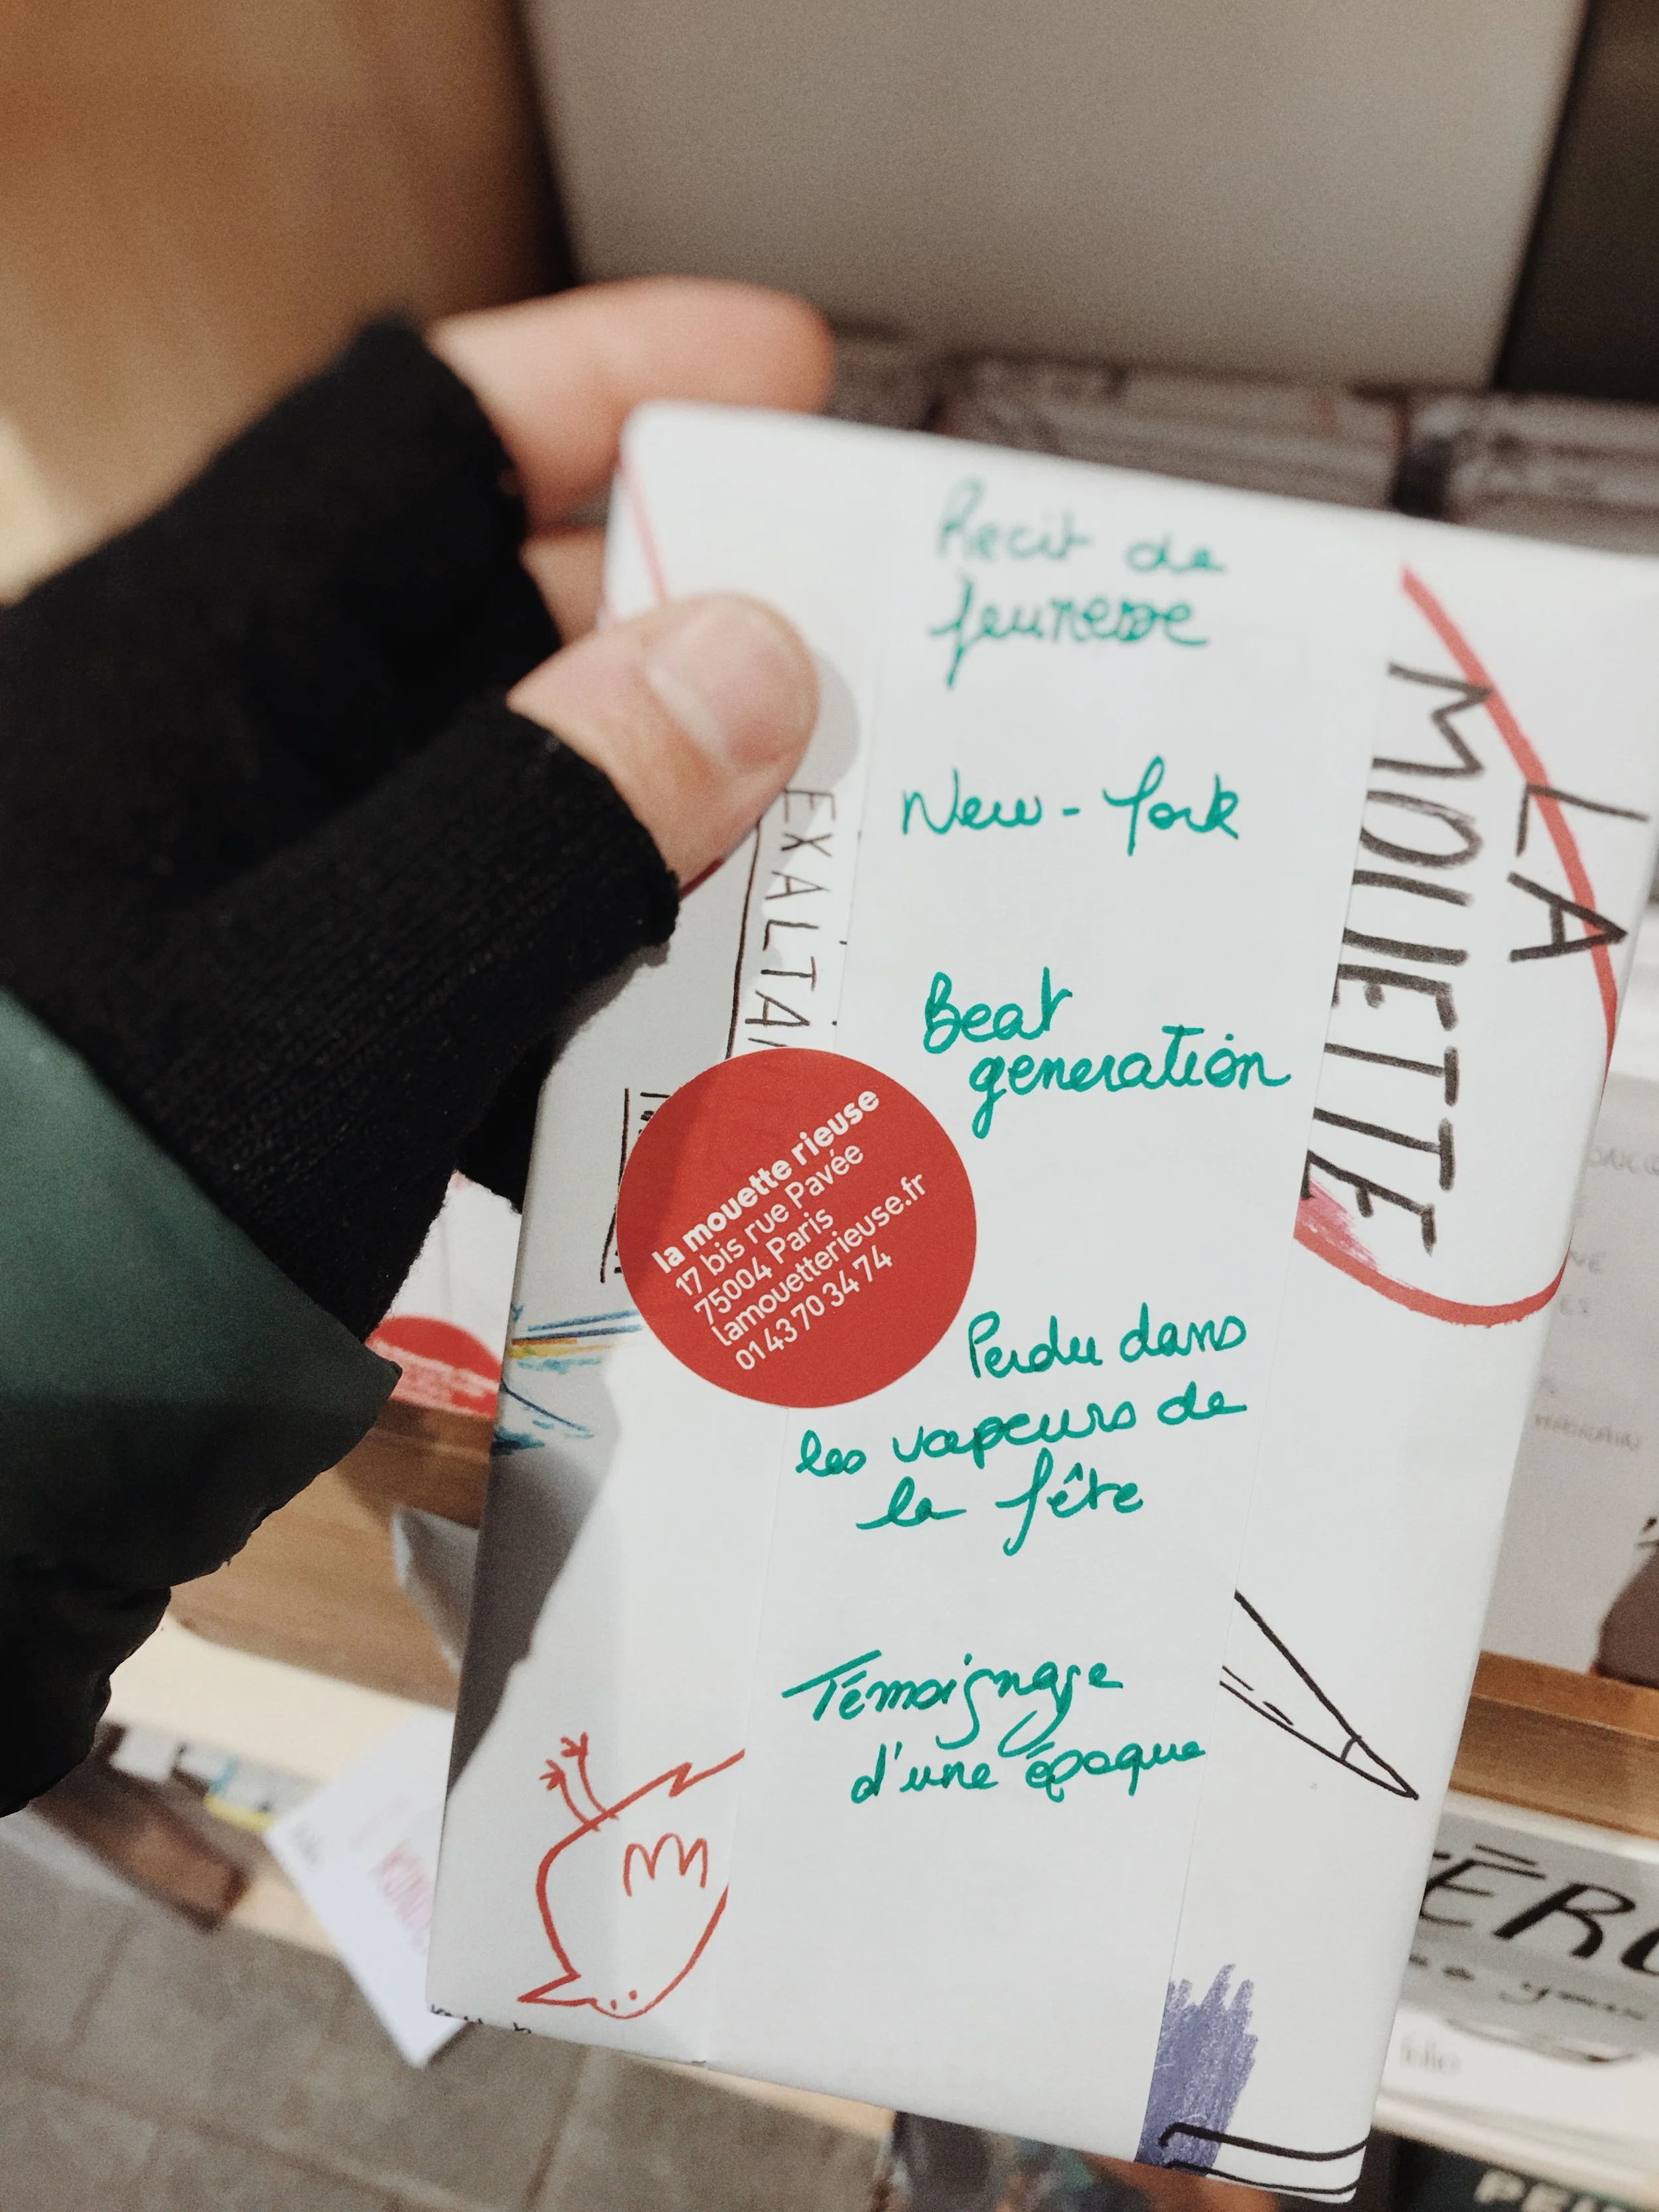 Recit de
Jeunesse
New-York
Beat
generation
Perdu dans
les vapeurs de
la fête
Témoignage
d'une époque
la mouette rieuse
17 bis rue Pavée
75004 Paris
lamouetterieuse.fr
01 43 70 34 74
LA
MOUETTE
EXALTAN
folio